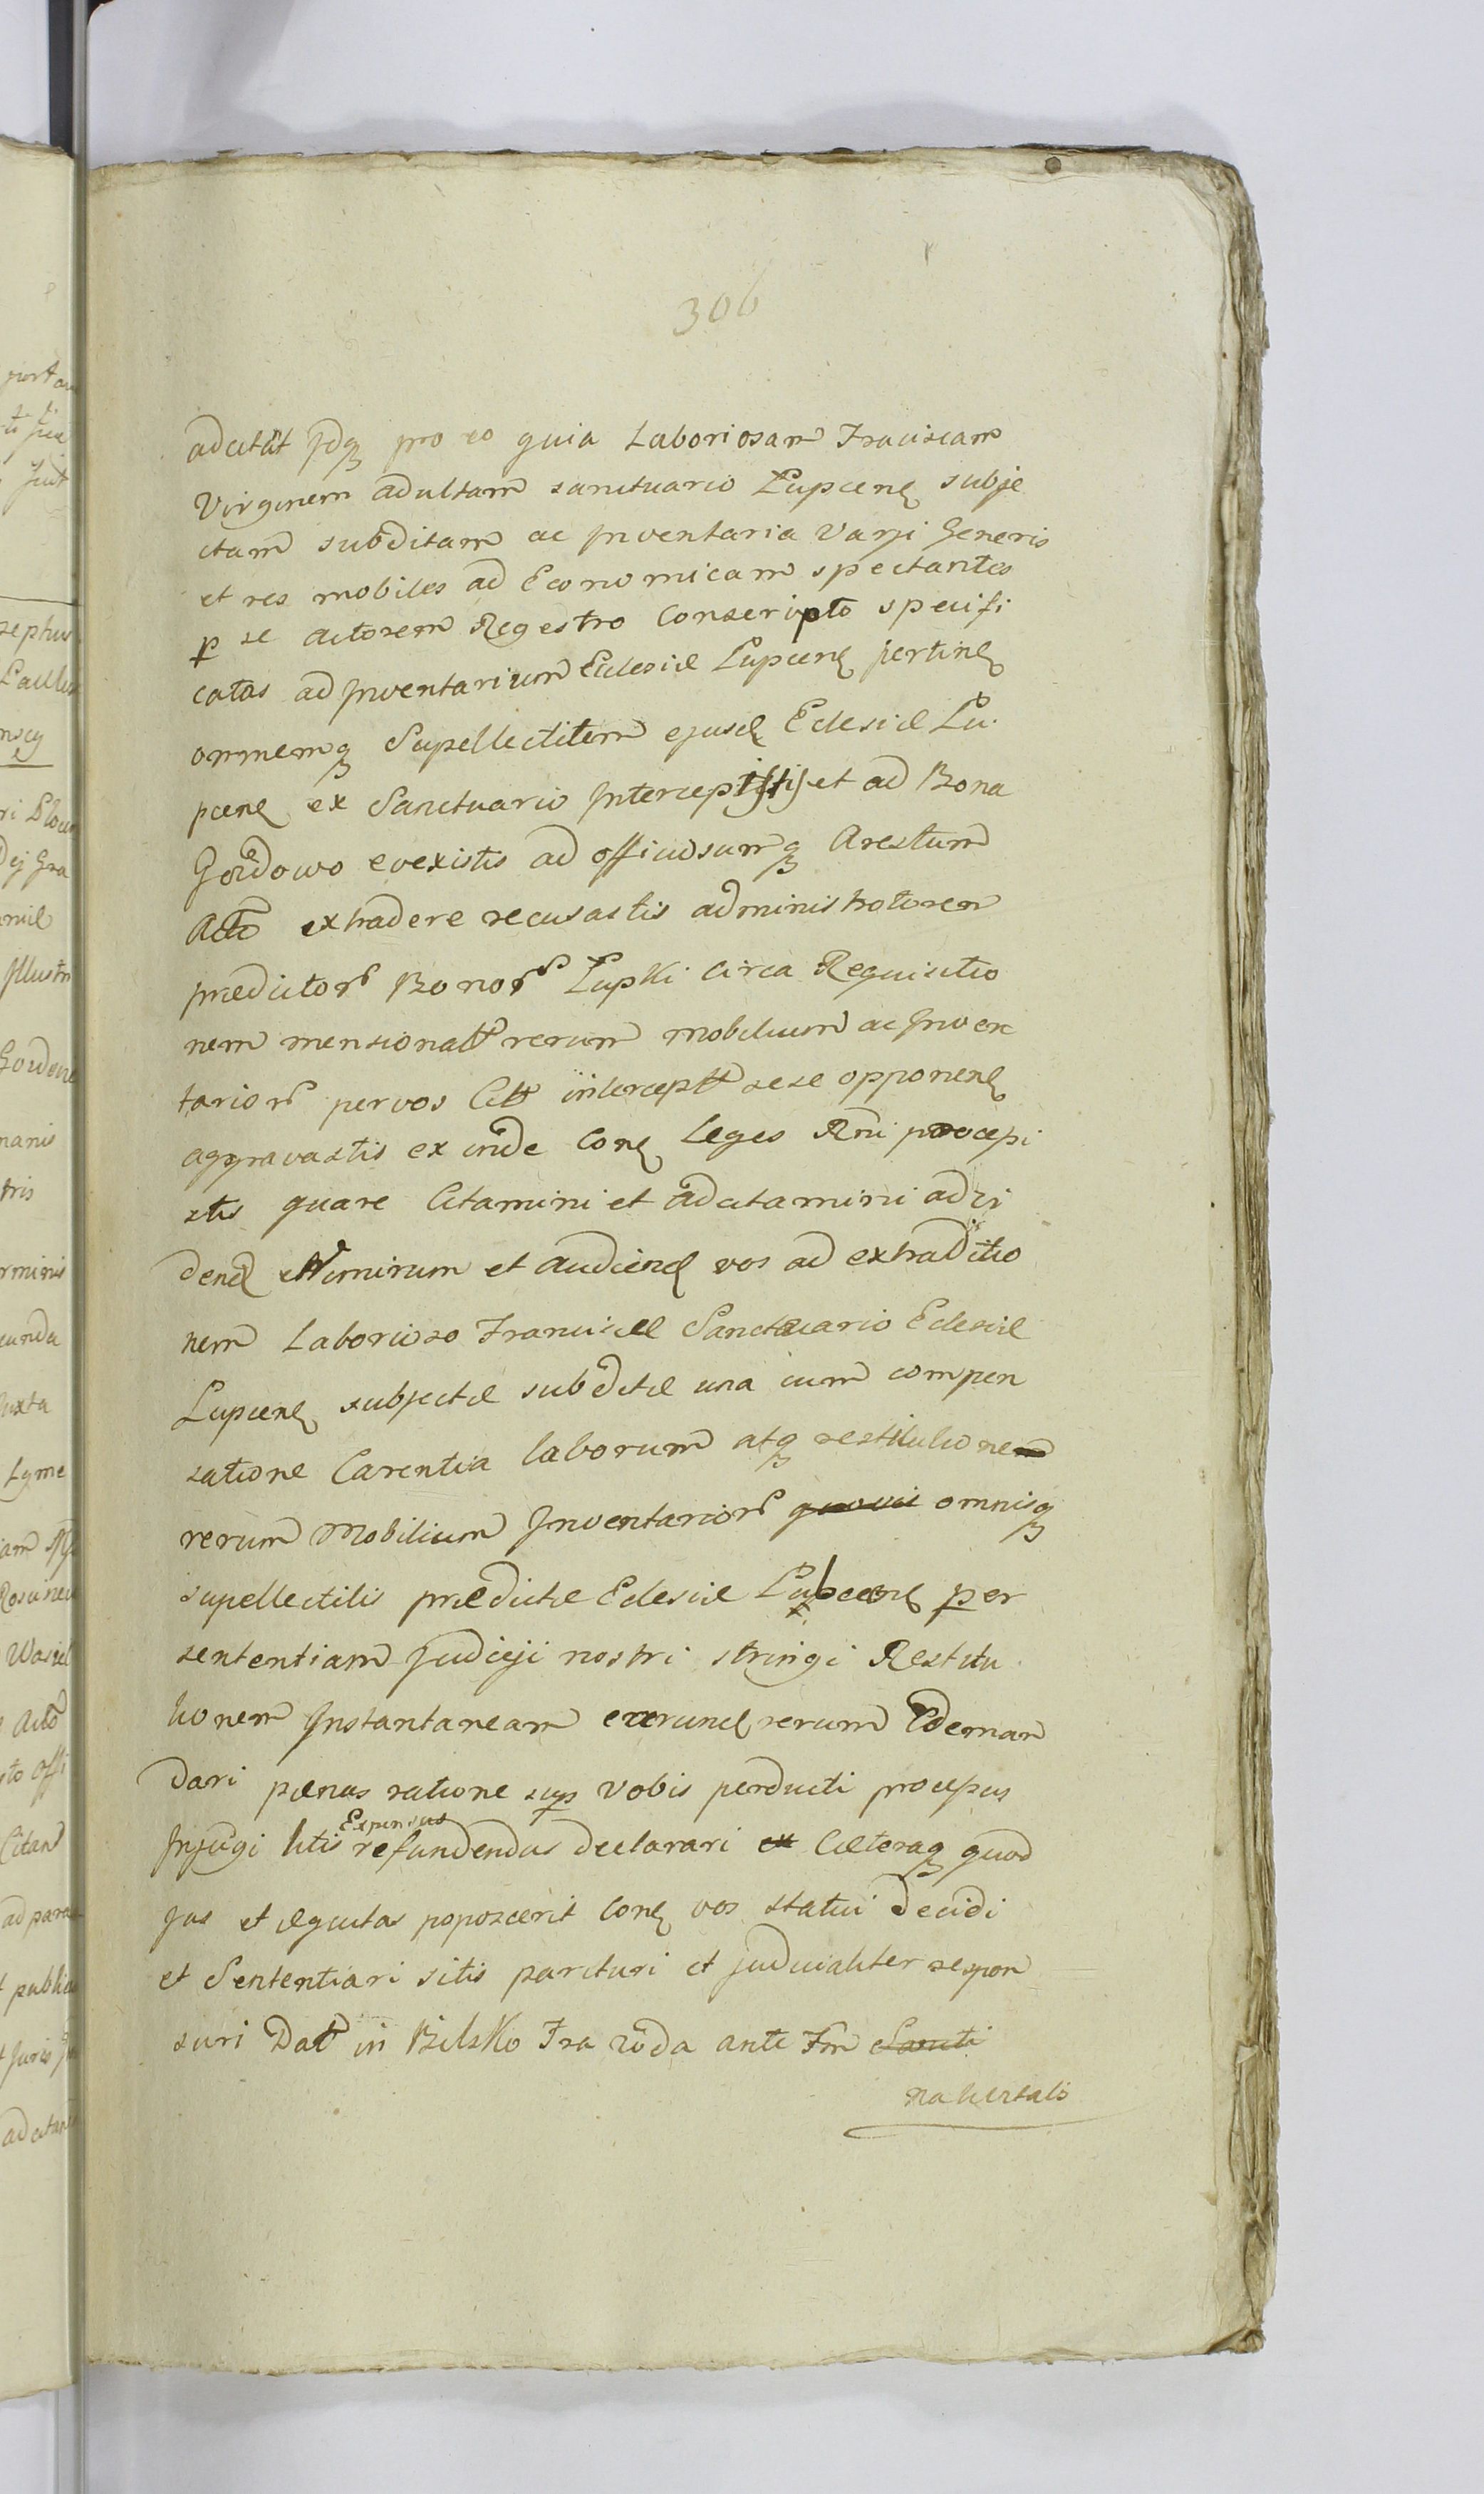 306
adcitat Idq pro eo quia Laboriosam Fraciscam
Virginem adultam sanctuario Lupcenẽ subje
ctam subditam ac Inventaria varji Generis
et res mobiles ad Economicam spectantes
p se actorem Regestro Conscripto specifi
catas ad Inventarium Eclesiæ Lupcenẽ pertinẽ
omnemq Supellectilem ejusd Eclesiæ Lu.
pcenẽ ex Sanctuario Intercepistis et ad Bona
Gozdowo evexistis ad officiosumq Arestum
Acto extradere recusastis administratorem
prædictor Bonor Lupki circa Requisitio
nem mensionatt rerum mobilium ac Inven
tarior per vos Citt intercept sese opponenẽ
aggravastis ex inde Conẽ Leges Rni procepi
stis quare Citamini et adcitamini ad vi
dend Nimirum et audiend vos ad extraditio
nem Laborioso Franciscæ Sanctuario Eclesiæ
Lupcenẽ subjectæ subditæ una cum compen
satione Carentia laborum atq restitutione
rerum Mobilium Inventarior quovis omnisq
supellectilis prædictæ Eclesiæ Lupcenẽ per
sententiam Judicji nostri stringi Restitu
tionem Instantaneam rerum Edeman
dari pænas ratione sup vobis perducti processus
Injugi litis Expensas refundendas declarari et Cæteraq quod
jus et æquitas poposcerit Conẽ vos statui decidi
et Sententiari sitis parituri et judicialiter respon
suri Dat in Bielsko Fra 2da ante Fm Sancti